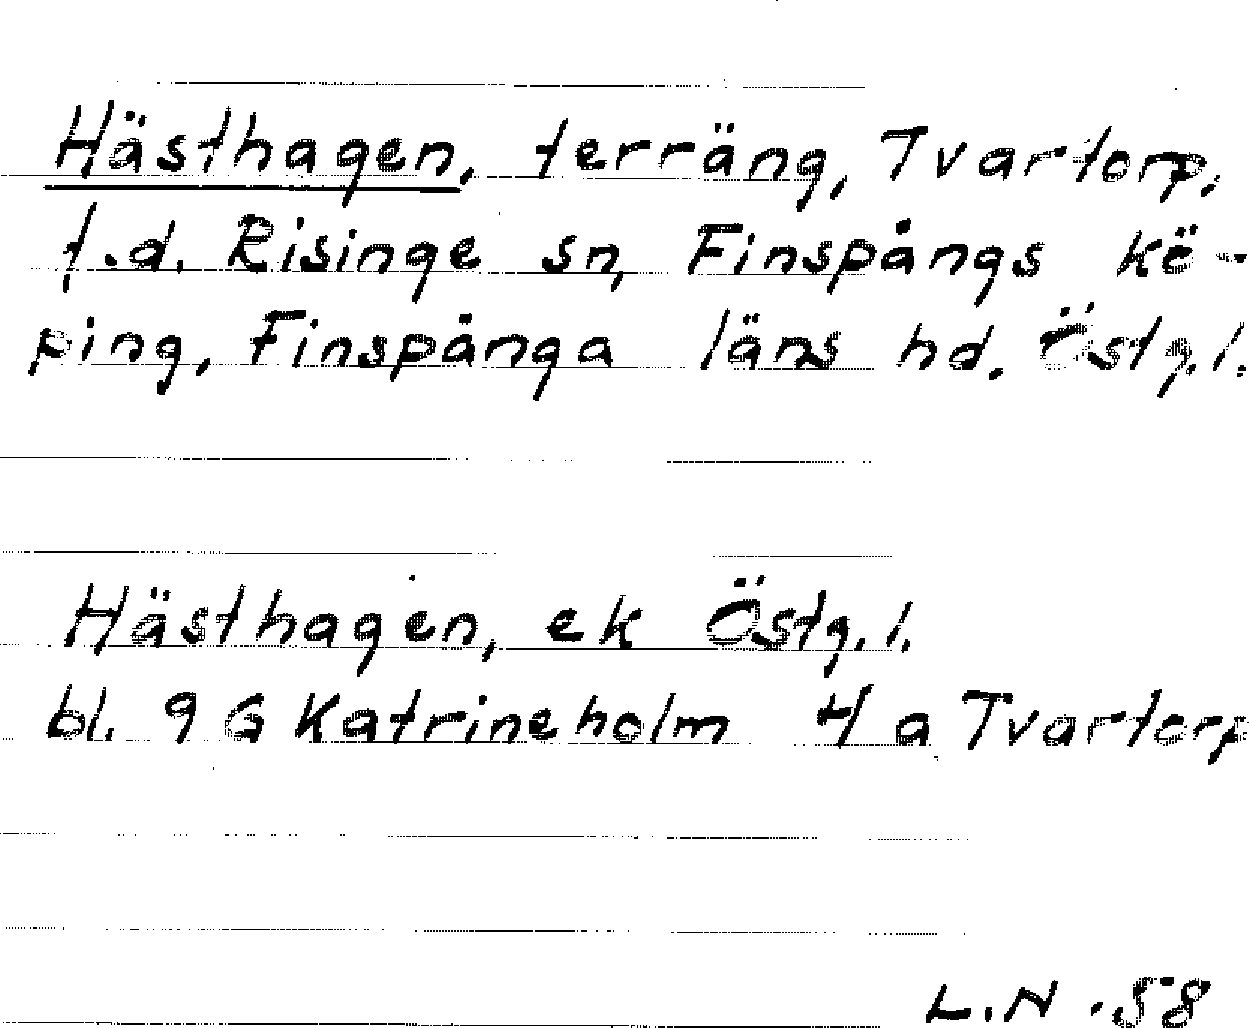 Hästhagen, terräng, Tvartorp,
f.d. Risinge sn, Finspångs kö-
ping, Finspånga läns hd. Östg.l.
Hästhagen, ek Östg.l.
bl. 9 G Katrineholm 4 a Tvartorp
L.N. 58